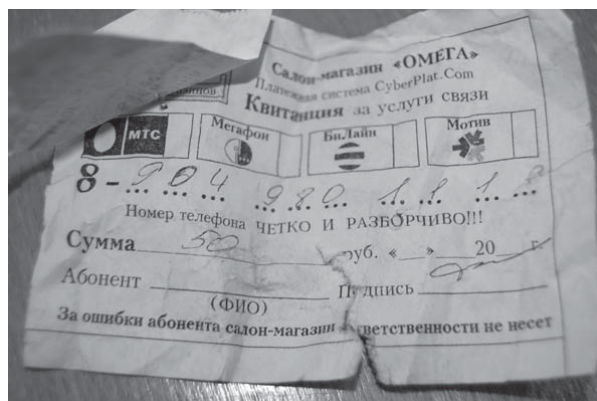 Салон-магазин «ОМЕГА»
Платежная система CyberPlat.Com
Квитанция за услуги связи
МТС Мегафон БиЛайн Мотив
8 - 904 980 18 18
Номер телефона ЧЕТКО И РАЗБОРЧИВО!!!
Сумма 50 руб. «__»____20__ г.
Абонент Подпись
(ФИО)
За ошибки абонента салон-магазин ответственности не несет